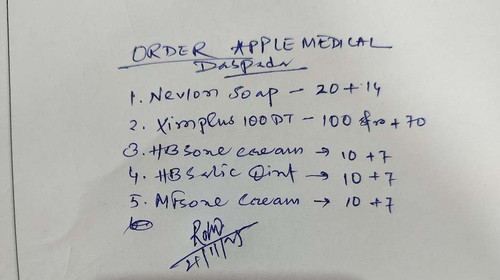 ORDER APPLE MEDICAL
Daspada
1. Nevlon Soap - 20 + 14
2. Ximplus 100 DT - 100 + 70
3. HBSone cream → 10 + 7
4. HBSalic Oint → 10 + 7
5. MFsone Cream → 10 + 7